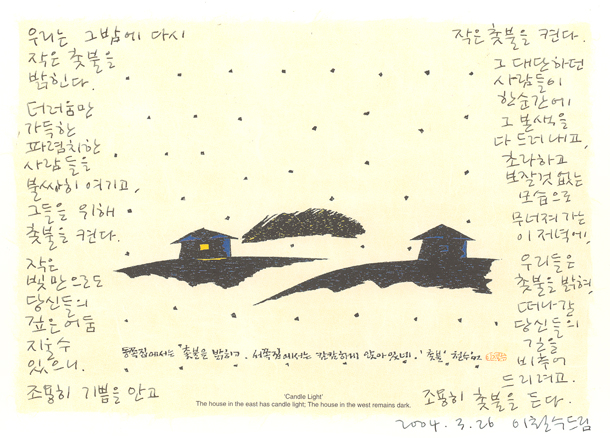 우리는 그 밤에 다시
작은 촛불을
밝힌다.
더러움만
가득한
파렴치한
사람들을
불쌍히 여기고,
그들을 위해
촛불을 켠다.
작은
빛 만으로도
당신들의
깊은 어둠
지울 수
있으니.
조용히 기쁨을 안고
작은 촛불을 켠다.
그 대단하던
사람들이
한순간에
그 본색을
다 드러내고,
초라하고
보잘것 없는
모습으로
무너져 가는
이 저녁에,
우리들은
촛불을 밝혀,
떠나갈
당신들의
길을
비추어
드리려고.
조용히 촛불을 든다.
2004. 3. 26 이철수드림
동쪽집에서는 촛불을 밝히고. 서쪽집에서는 캄캄하게 앉아있네. '촛불'
'Candle Light'
The house in the east has candle light; The house in the west remains dark.